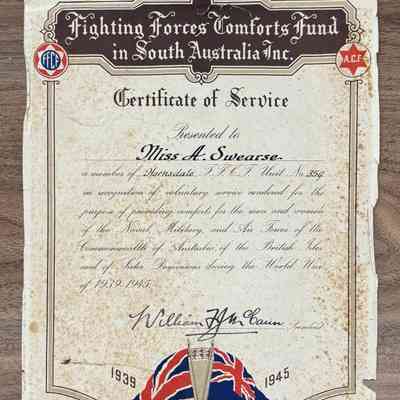 Fighting Forces Comforts Fund
in South Australia Inc.
F.F.C.F.
A.C.F.
Certificate of Service
Presented to
Miss A. Swearse
a member of Thornsdale F.F.C.F. Unit No. 354
in recognition of voluntary service rendered for the
purpose of providing comforts for the men and women
of the Naval, Military, and Air Forces of the
Commonwealth of Australia, of the British Isles
and of Sister Dominions during the World War
of 1939-1945.
William F J McCann
President
1939
1945